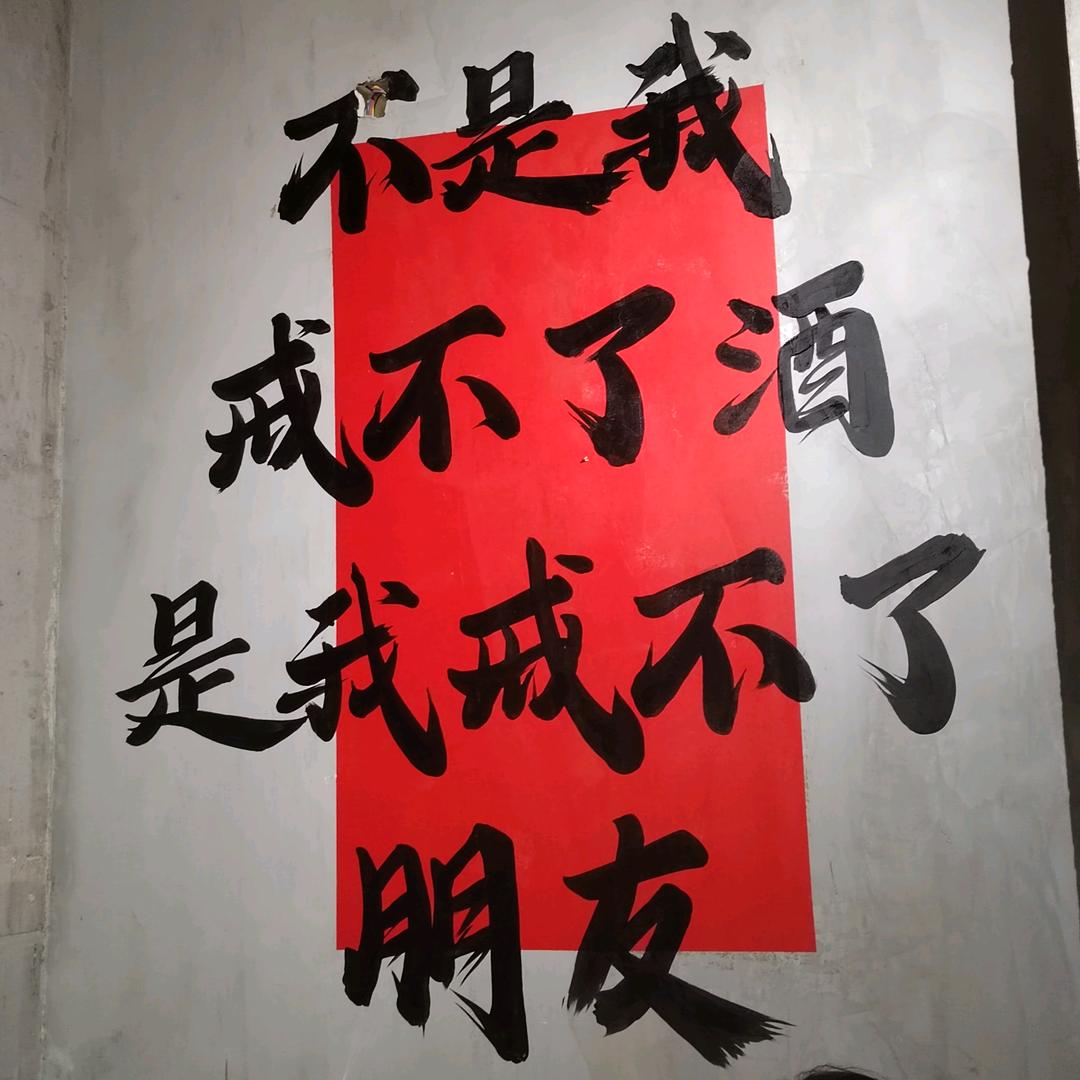 不是我
戒不了酒
是我戒不了
朋友